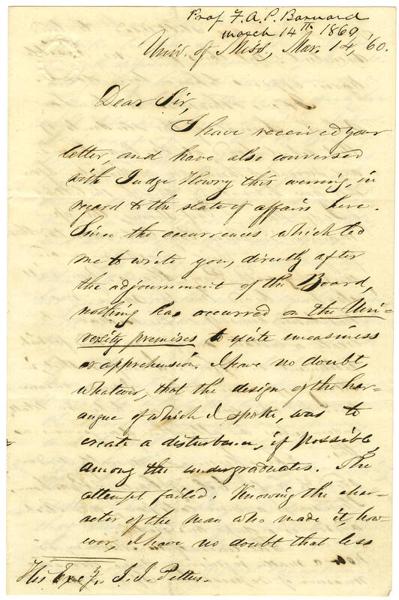 Prof F. A. P. Barnard
March 14th 1860
Univ. of Miss, Mar. 14, '60.
Dear Sir,
I have received your
letter, and have also conversed
with Judge Howry this evening, in
regard to the state of affairs here.
Since the occurrences which led
me to write you, directly after
the adjournment of the Board,
nothing has occurred on the Uni-
versity premises to excite uneasiness
or apprehension. I have no doubt,
whatever, that the design of the har-
angue of which I spoke, was to
create a disturbance, if possible,
among the undergraduates. The
attempt failed. Knowing the char-
acter of the man who made it, how-
ever, I have no doubt that less
His Exc'y J. J. Pettus.